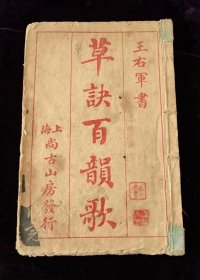 王右軍書
草訣百韻歌
上海
尚古山房發行